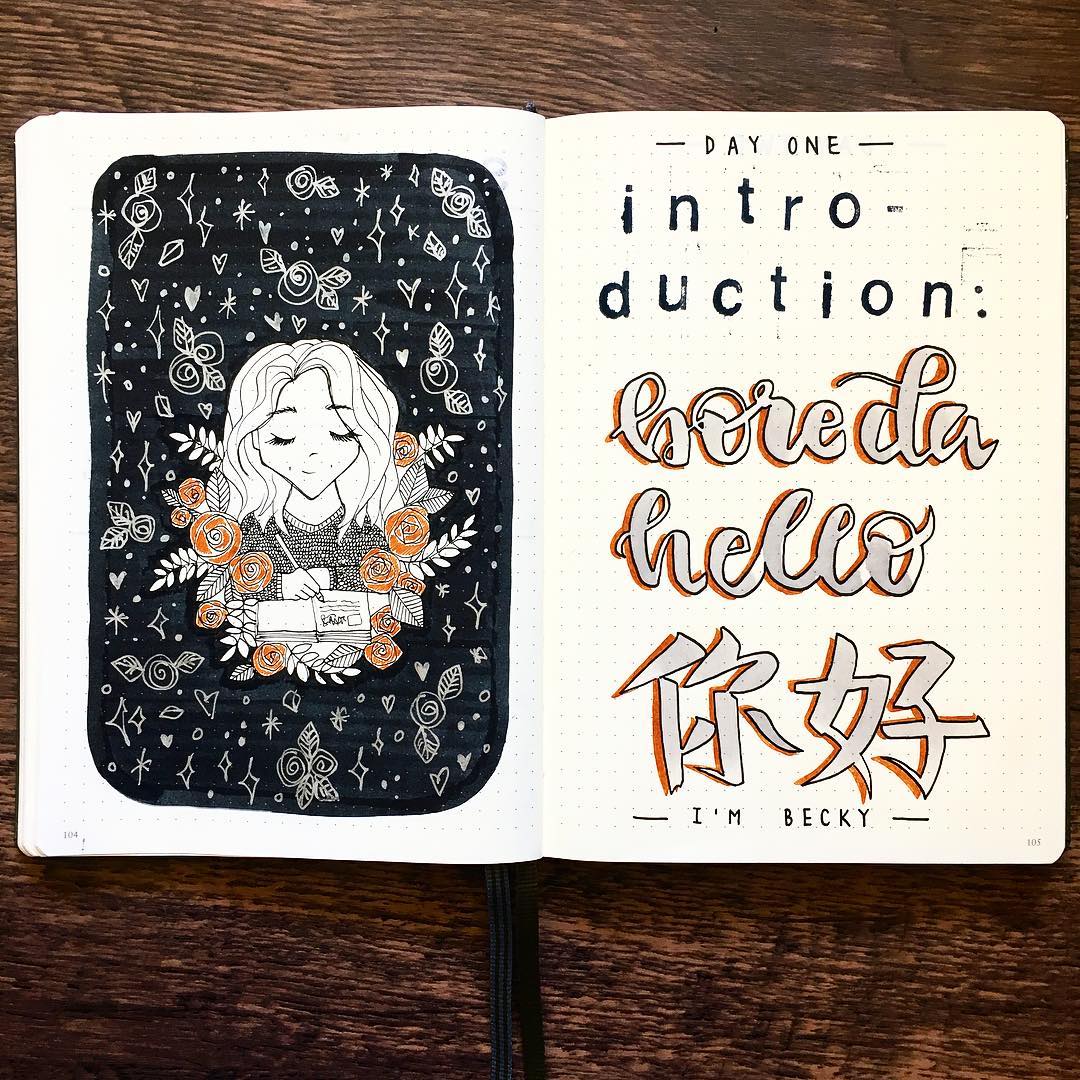 DAY ONE
intro-
duction:
bore da
hello
你好
I'M BECKY
104
105